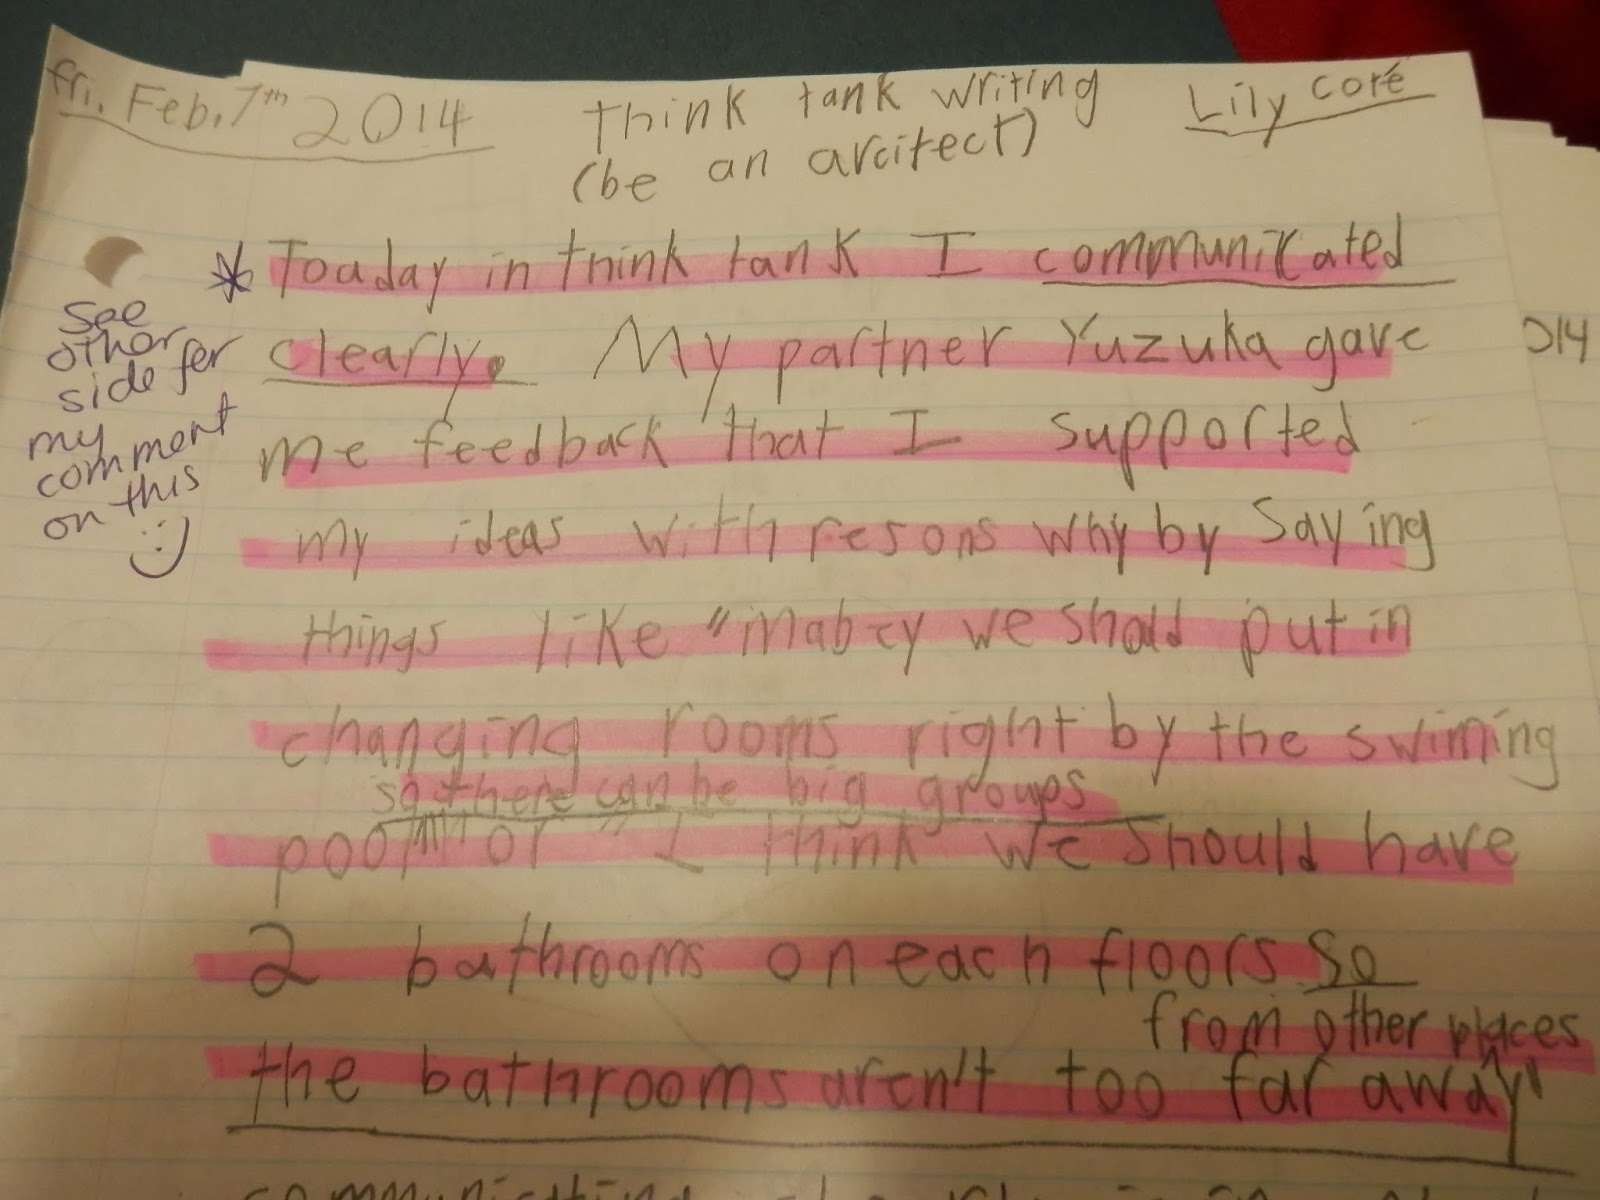 fri. Feb. 7th 2014
think tank writing
Lily coré
(be an arcitect)
* Toaday in think tank I communicated
clearly. My partner Yuzuka gave
me feedback that I supported
my ideas with resons why by saying
things like "mabey we shold put in
changing rooms right by the swiming
so there can be big groups
pool" or "I think we should have
2 bathrooms on each floors so
from other places
the bathrooms aren't too far away"
See
other
side for
my
comment
on this
:)
014